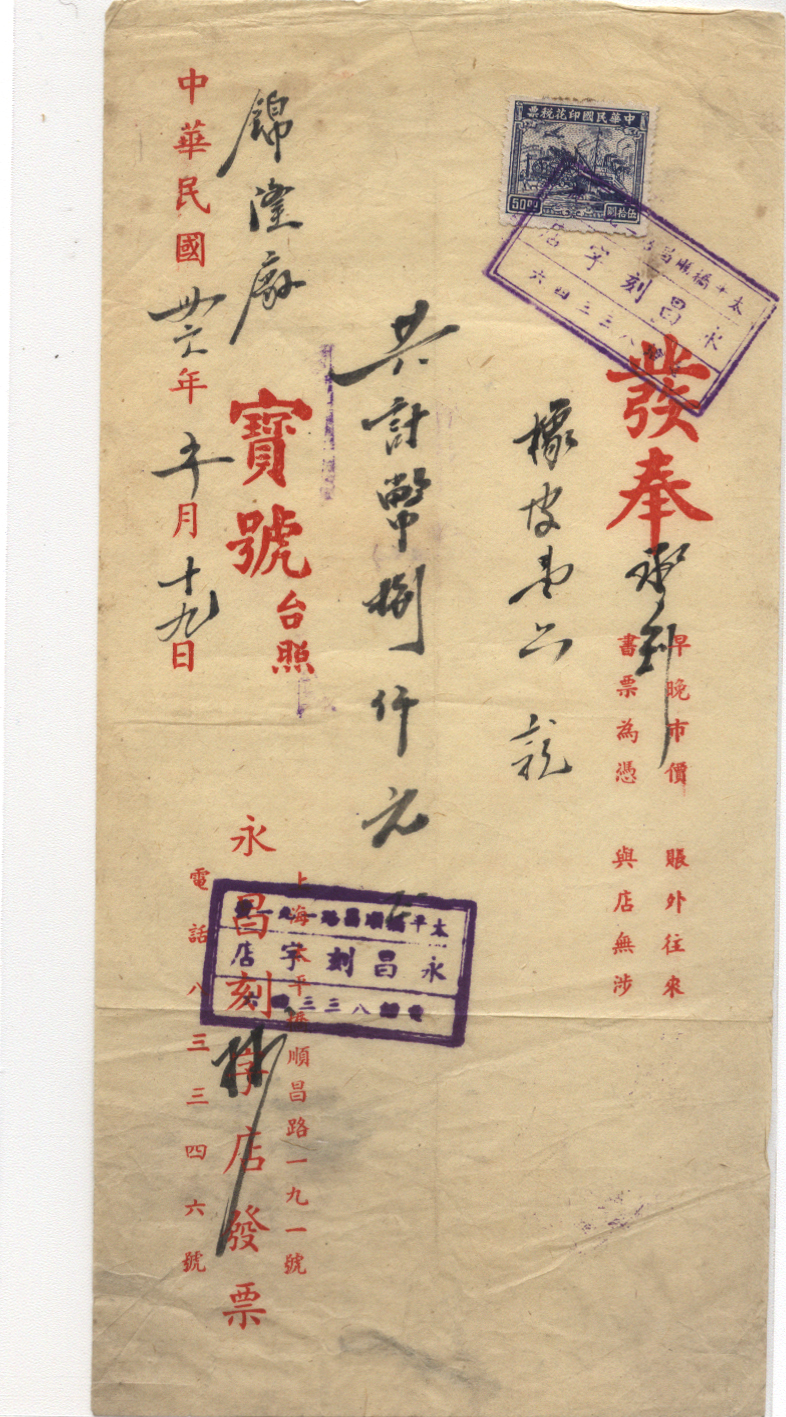 中華民國印花稅票
50.00
伍拾圓
太平橋順昌路一九一號
永昌刻字店
電話八三三四六
發奉
承刻
早晚市價 賬外往來
書票為憑 與店無涉
橡皮 就
共計幣捌仟元
錦隆廠
寶號 台照
上海太平橋順昌路一九一號
永昌刻字店發票
電話八三三四六號
太平橋順昌路一九一號
永昌刻字店
電話八三三四六
中華民國卅六年五月十九日